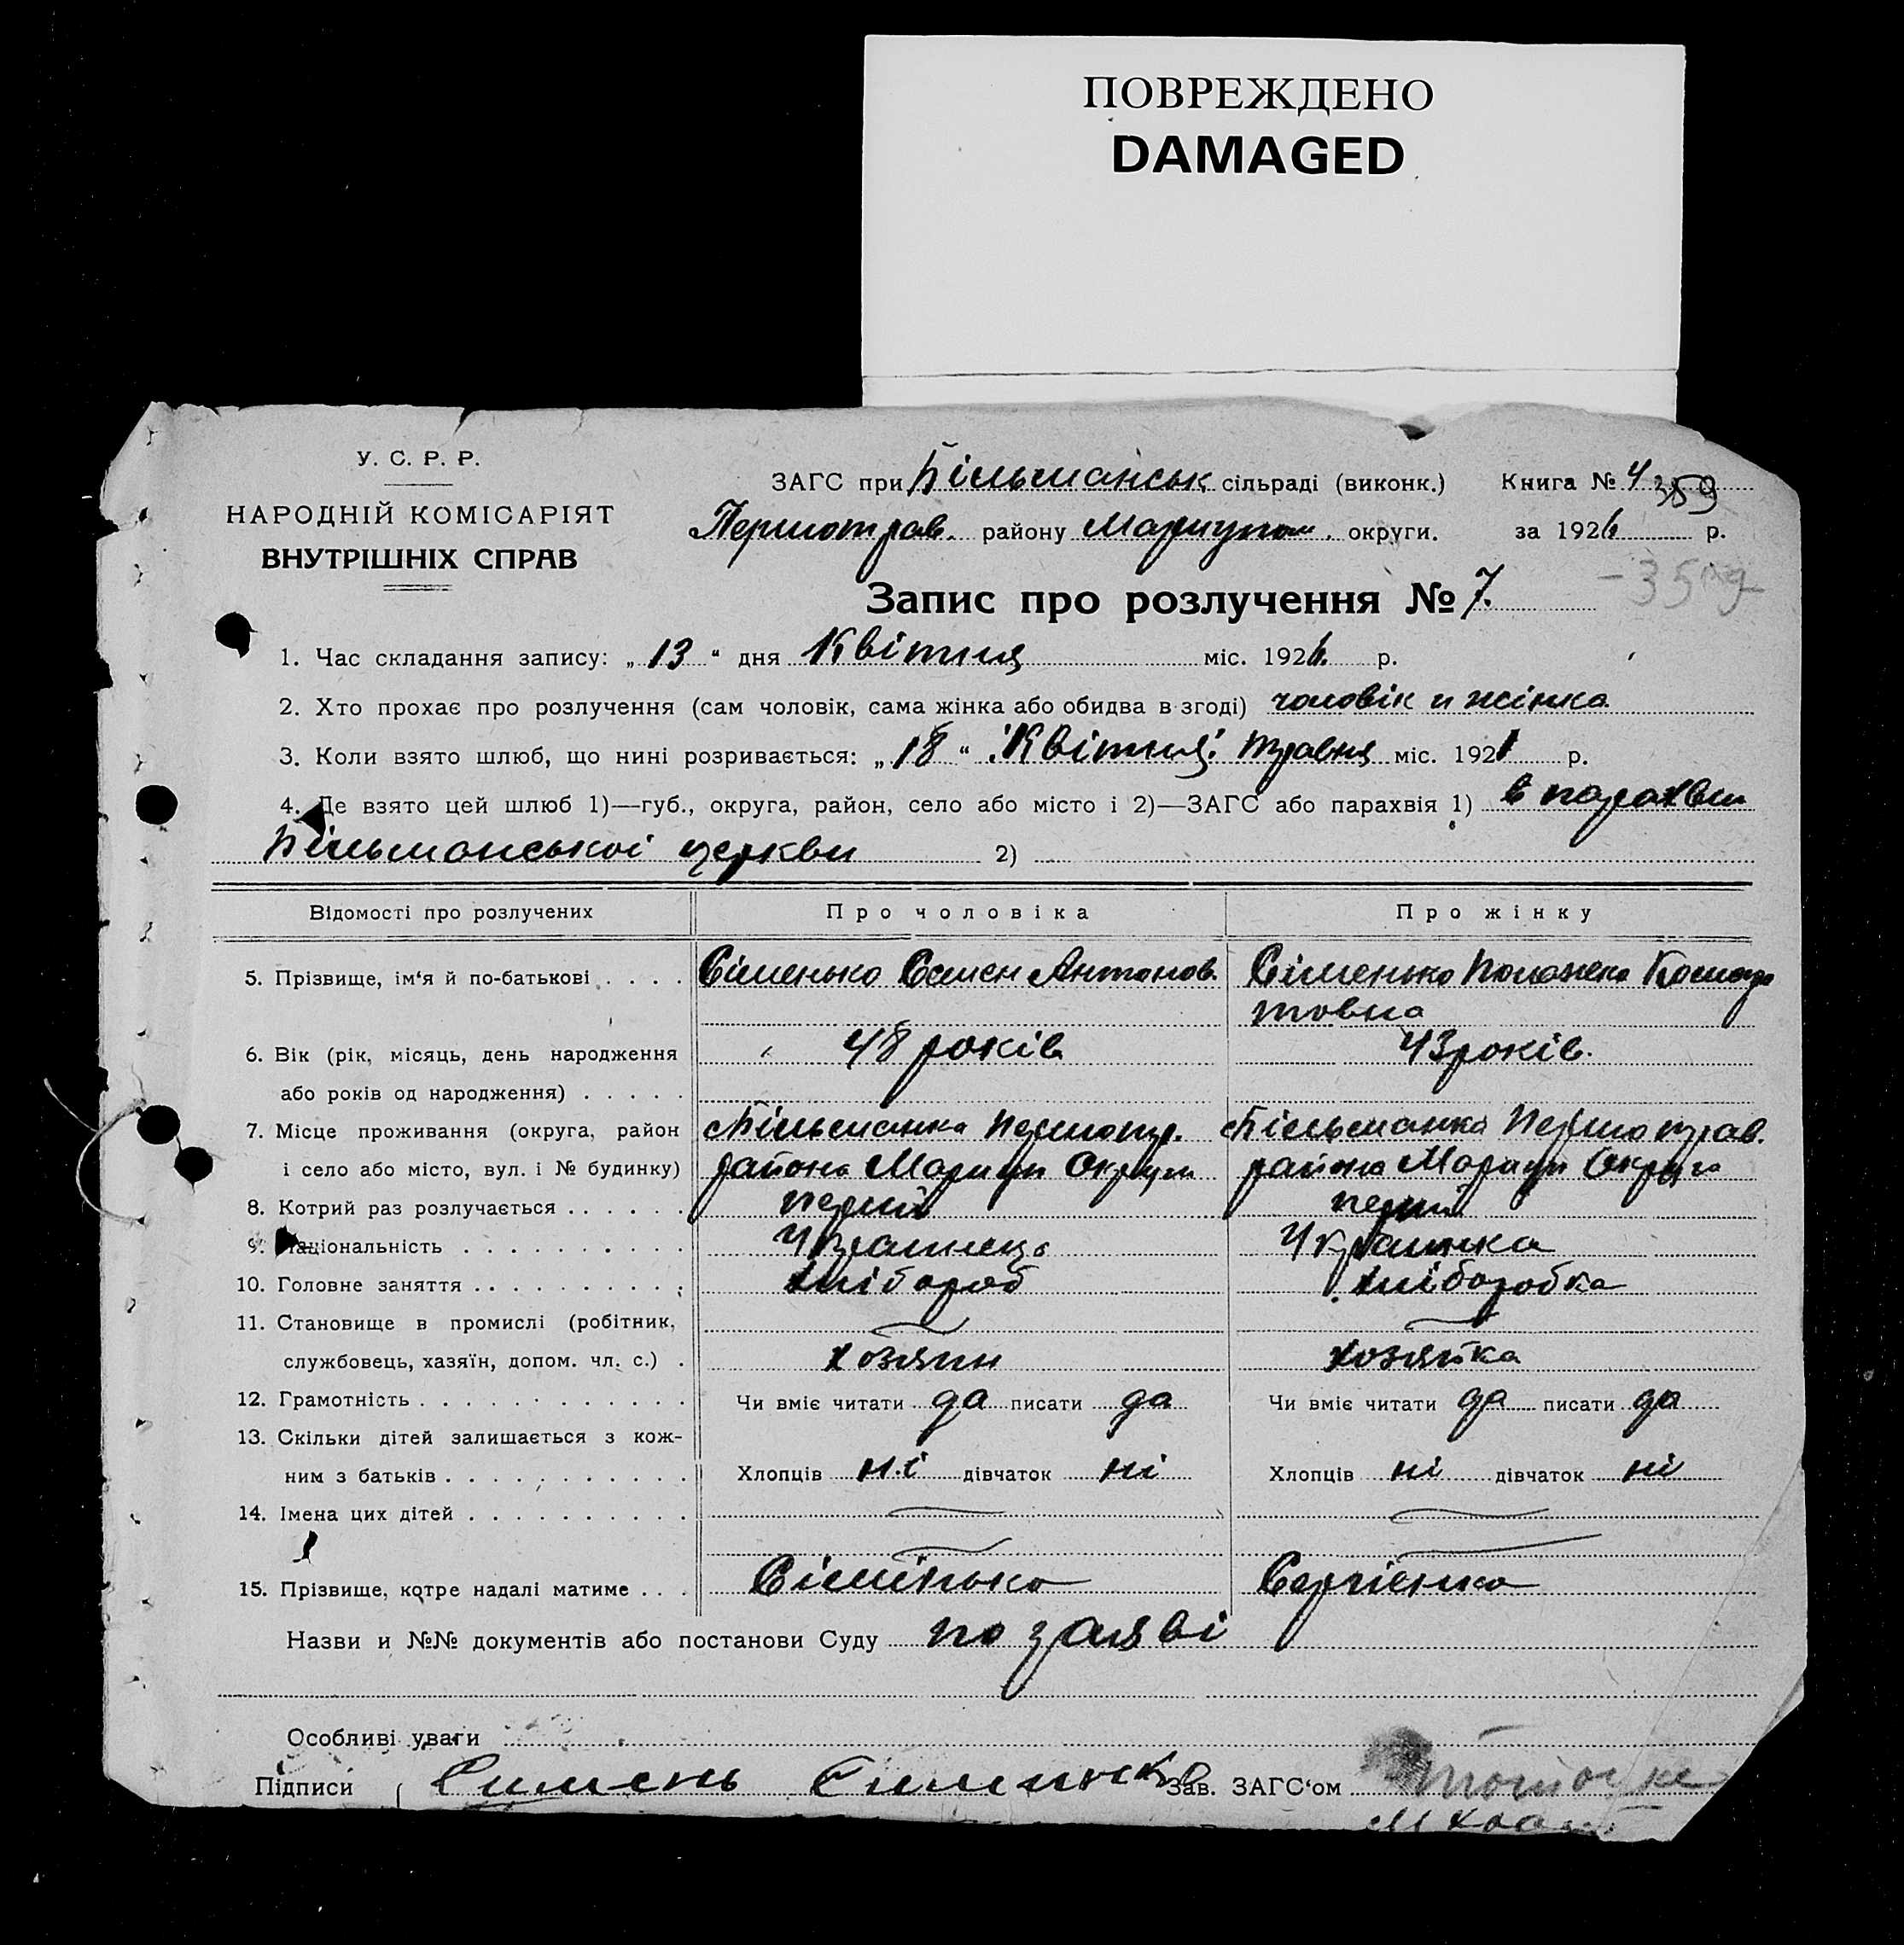 ПОВРЕЖДЕНО
DAMAGED
У. С. Р. Р.
НАРОДНІЙ КОМІСАРІЯТ
ВНУТРІШНІХ СПРАВ
ЗАГС при Більманськ сільраді (виконк.) Книга № 4 359
Першотрав. району Маріупол. округи. за 1926 р.
Запис про розлучення № 7.
1. Час складання запису: „ 13 “ дня Квітня міс. 1926. р.
2. Хто прохає про розлучення (сам чоловік, сама жінка або обидва в згоді) чоловік и жінка
3. Коли взято шлюб, що нині розривається: „ 18 “ Квітня травня міс. 1921 р.
4. Де взято цей шлюб 1)—губ., округа, район, село або місто і 2)—ЗАГС або парахвія 1) в парахвии
Більманської церкви 2)
Відомості про розлучених Про чоловіка Про жінку
5. Прізвище, ім‘я й по-батькові Сіменько Семен Антонов. Сіменько
товна
6. Вік (рік, місяць, день народження 48 років 43 років.
або років од народження)
7. Місце проживання (округа, район Більманка Першотр. Більманка Першотрав.
і село або місто, вул. і № будинку) района Мариуп Округи района Мариуп Округи
8. Котрий раз розлучається перший перший
9. Національність Украинець Украинка
10. Головне заняття хлібороб хлiборобка
11. Становище в промислі (робітник,
службовець, хазяїн, допом. чл. с.) хозяин хозяйка
12. Грамотність Чи вміє читати да писати да Чи вміє читати да писати да
13. Скільки дітей залишається з кож-
ним з батьків Хлопців ні дівчаток ні Хлопців ні дівчаток ні
14. Імена цих дітей
15. Прізвище, котре надалі матиме Сіменько Сергієнко
Назви и №№ документів або постанови Суду по заяві
Особливі уваги
Підписи Симень Сименко Зав. ЗАГС‘ом